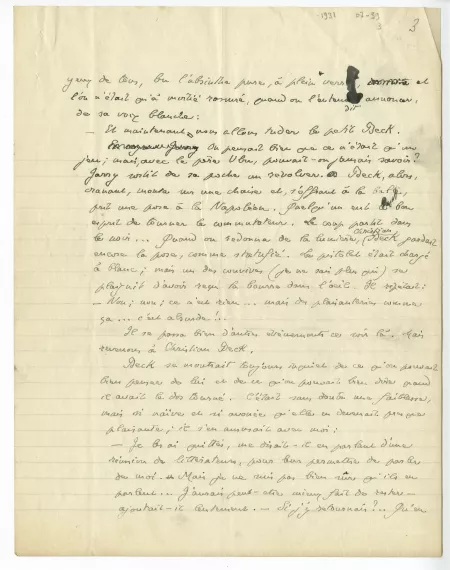 1931 02-99
3
3
yeux de tous, bu l'absinthe pure, à plein verre et
l'on n'était qu'à moitié rassuré, quand on l'entendit annoncer,
de sa voix blanche :
— Et maintenant, nous allons tuder le petit Beck.
On pensait bien que ce n'était qu'un
jeu ; mais, avec le père Ubu, pouvait-on jamais savoir ?
Jarry sortit de sa poche un révolver. Beck, alors,
crânant, monta sur une chaise et, s'offrant à la
prit une pose à la Napoléon. Quelqu'un eut le bon
esprit de tourner le commutateur. Le coup partit dans
le noir... Quand on redonna de la lumière, Christian Beck gardait
encore la pose, comme statufié. Le pistolet était chargé
à blanc ; mais un des convives (je ne sais plus qui) se
plaignait d'avoir reçu la bourre dans l'œil. Il répétait :
— Non ; non ; ce n'est rien... mais des plaisanteries comme
ça... c'est absurde !...
Il se passa bien d'autres événements ce soir là. Mais
revenons à Christian Beck.
Beck se montrait toujours inquiet de ce qu'on pouvait
bien penser de lui et de ce qu'on pouvait bien dire quand
il avait le dos tourné. C'était sans doute une faiblesse,
mais si naïve et si avouée qu'elle en devenait presque
plaisante ; il s'en amusait avec moi :
— Je les ai quittés, me disait-il en parlant d'une
réunion de littérateurs, pour leur permettre de parler
de moi. Mais je ne suis pas bien sûr qu'ils en
parlent... J'aurais peut-être mieux fait de rester —
ajoutait-il lentement. — Si j'y retournais ?.. Qu'en